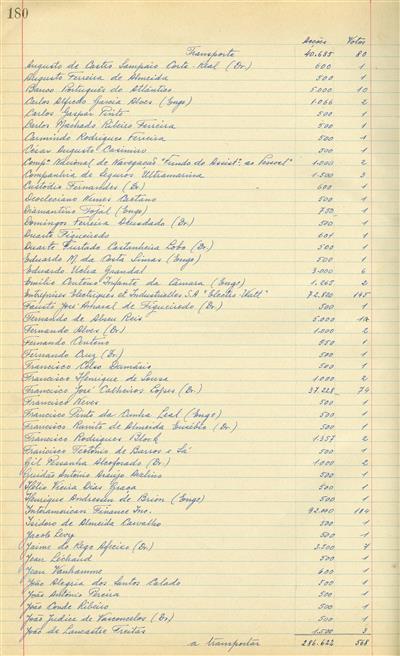 180
Acções Votos
Transporte 40.635 80
Augusto de Castro Sampaio Corte-Real (Dr.) 600 1
Augusto Ferreira de Almeida 500 1
Banco Português do Atlântico 5.000 10
Carlos Alfredo Garcia Alves (Engº) 1.066 2
Carlos Gaspar Pinto 500 1
Carlos Machado Ribeiro Ferreira 500 1
Carmindo Rodrigues Ferreira 500 1
César Augusto Casimiro 500 1
Compª Nacional de Navegação "Fundo de Assist. ao Pessoal" 1.000 2
Companhia de Seguros Ultramarina 1.500 3
Custódio Fernandes (Dr) 600 1
Deocleciano Nunes Caetano 500 1
Diamantino Tojal (Engº) 750 1
Domingos Ferreira Deusdado (Dr.) 500 1
Duarte Figueiredo 601 1
Duarte Furtado Castanheira Lobo (Dr.) 500 1
Eduardo M. da Costa Simas (Engº) 500 1
Eduardo Grandal 3.000 6
Emílio Infante da Câmara (Engº) 1.265 2
Entreprises Electriques et Industrielles S.A "Electro-Watt" 72.800 145
Fausto José Amaral de Figueiredo (Dr.) 500 1
Fernando de Abreu Reis 5.000 10
Fernando Alves (Dr.) 1.000 2
Fernando Centeno 1
Fernando Cruz (Dr.) 500 1
Francisco Celso Damásio 500 1
Francisco Henrique de Sousa 1.000 2
Francisco José Calheiros Lopes (Dr.) 37.228 74
Francisco Neves 500 1
Francisco Pinto da Cunha Leal (Engº) 500 1
Francisco Ramito de Almeida Eusébio (Dr.) 500 1
Francisco Rodrigues Block 1.357 2
Francisco Teotónio de Barros e Sá 500 1
Gil Pessanha Alcoforado (Dr.) 1.000 2
António Araujo 500 1
Hélio Vieira Dias Graça 500 1
Henrique Andressen de Brion (Engº) 500 1
Interamerican Finance Inc. 92.000 184
Isidoro de Almeida Carvalho 500 1
Jacob Levy 500 1
Jaime do Rego Afreixo (Dr.) 3.500 7
Jean Lechaud 500 1
Jean Vanhamme 600 1
João Alegria dos Santos Calado 500 1
João António Pereira 500 1
João Conde Ribeiro 500 1
João Judice de Vasconcelos (Dr) 500 1
João de Lancastre Freitas 1.500 3
a transportar 286.622 568